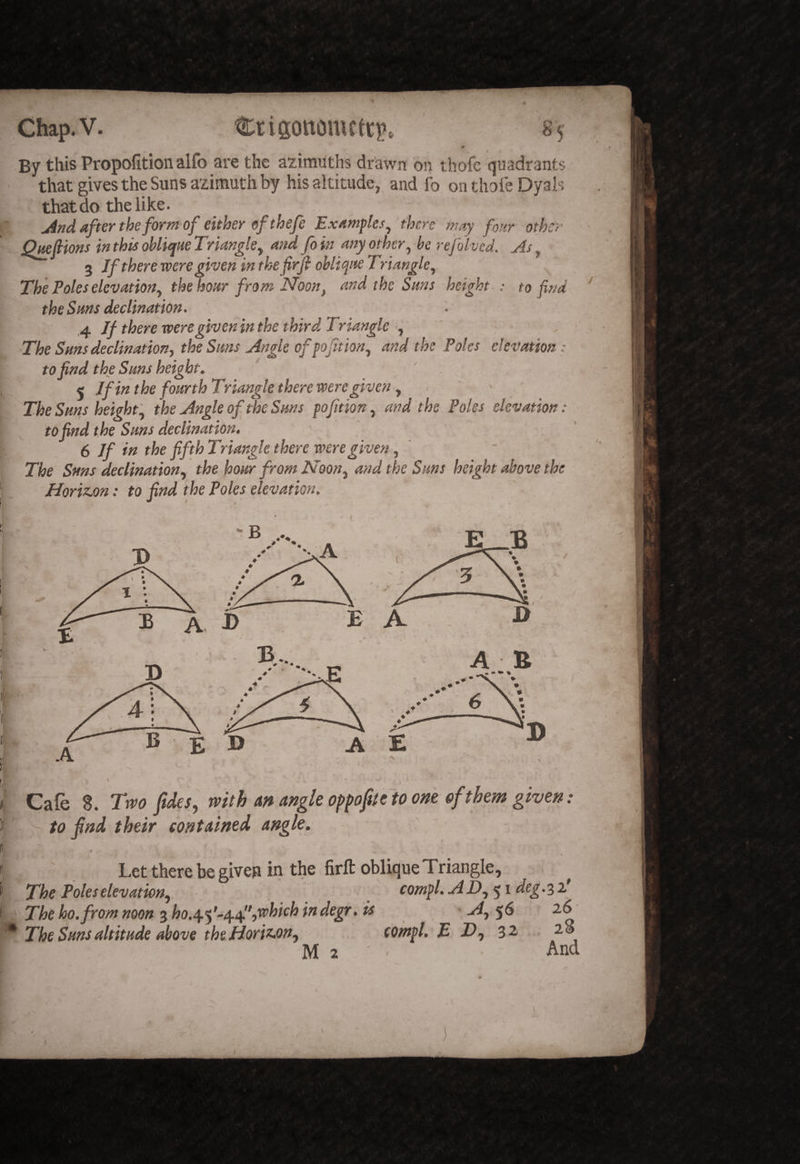 Chap. V. Trigonometry. 85
By this Propoſition alſo are the azimuths drawn on thoſe quadrants
that gives the Suns azimuth by his altitude, and ſo on thoſe Dyals
that do the like.
And after the form of either of theſe Examples, there may four other
Queſtions in this oblique Triangle, and ſo in any other, be reſolved. As,
3 If there were given in the firſt oblique Triangle,
The Poles elevation, the hour from Noon, and the Suns height : to find
the Suns declination.
4 If there were given in the third Triangle ,
The Suns declination, the Suns Angle of poſition, and the Poles elevation :
to find the Suns height.
5 If in the fourth Triangle there were given ,
The Suns height, the Angle of the Suns poſition , and the Poles elevation :
to find the Suns declination.
6 If in the fifth Triangle there were given ,
The Suns declination, the hour from Noon, and the Suns height above the
Horizon : to find the Poles elevation.
D B A E B
1 2 3
E B A D E A D
D B E A B
4 5 6
A B E D A E D
Caſe 8. Two ſides, with an angle oppoſite to one of them given :
to find their contained angle.
Let there be given in the firſt oblique Triangle,
The Poles elevation, compl. A D, 51 deg. 32'
The ho. from noon 3 ho. 45'-44'', which in degr. is A, 56 26
* The Suns altitude above the Horizon, compl. E D, 32 28
M 2 And